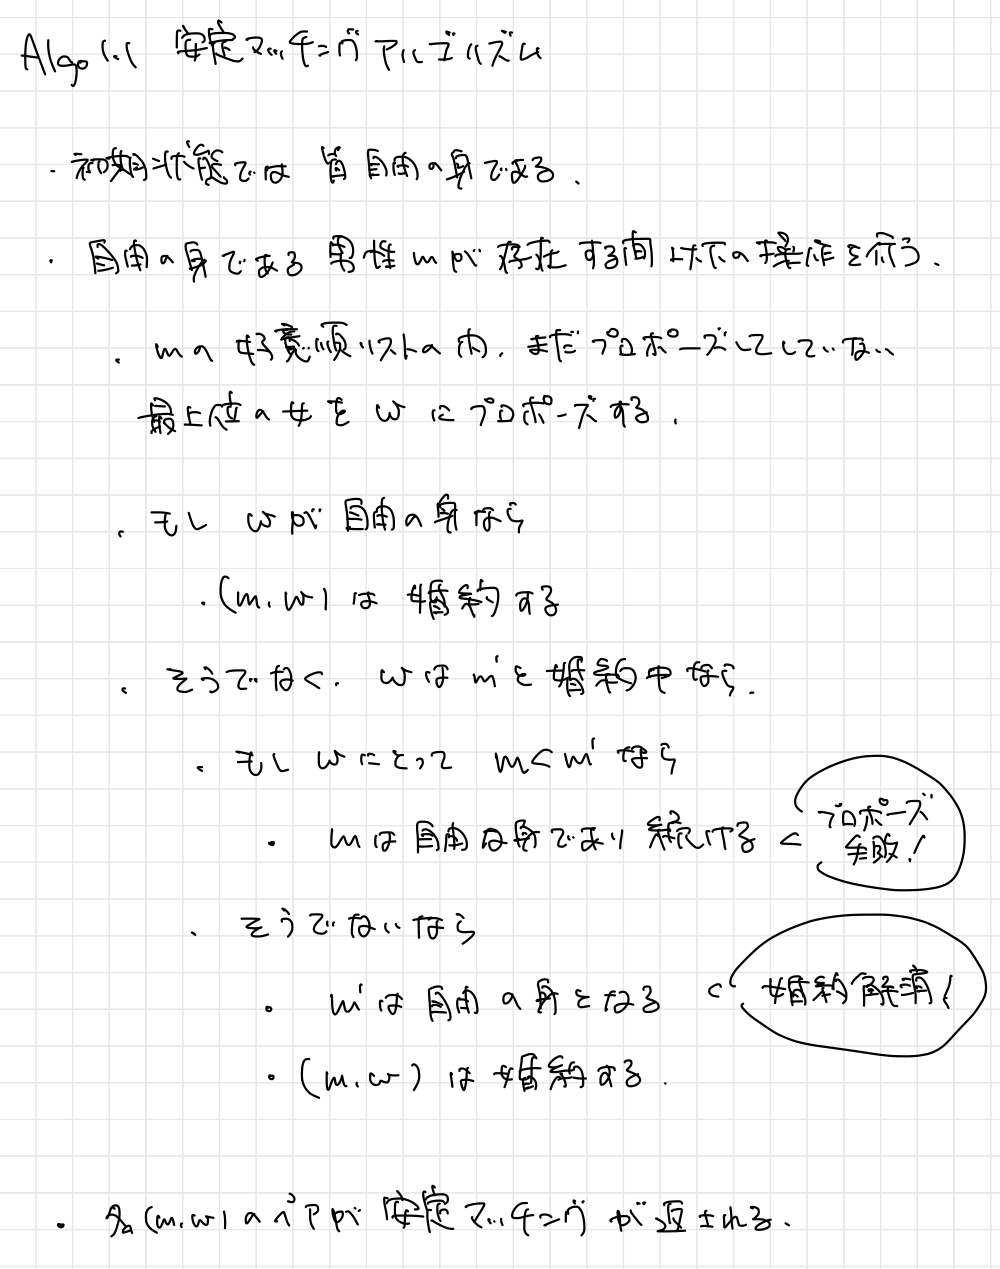 Algo 1.1 安定マッチングアルゴリズム
・初期状態では皆自由の身である.
・自由の身である男性mが存在する間以下の操作を行う.
・mの好意順リストの内, まだプロポーズしてしていない
最上位の女をwにプロポーズする.
・もしwが自由の身なら
・(m, w)は婚約する
・そうでなく, wはm'と婚約中なら.
・もしwにとって m<m' なら
・mは自由な身であり続ける <
プロポーズ
失敗!
・そうでないなら
・m'は自由の身となる <
婚約解消!
・(m, w)は婚約する.
・各(m, w)のペアが安定マッチングが返される.